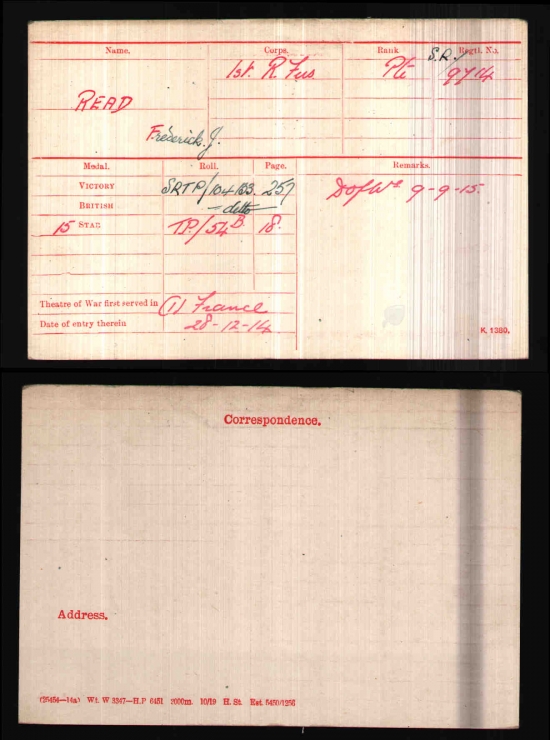 Name. Corps. Rank Regtl. No.
1st. R. Fus Pte S.R./ 9714
READ
Frederick. J.
Medal. Roll. Page. Remarks.
VICTORY SRTP/104 B3. 257 D of Wds 9-9-15
BRITISH - ditto -
15 STAR TP/54B 18.
Theatre of War first served in (1) France
Date of entry therein 28-12-14
K 1380.
Correspondence.
Address.
(25454—14a) Wt. W 3347—H.P 6451 2000m. 10/19 H. St. Est. 5400/1256